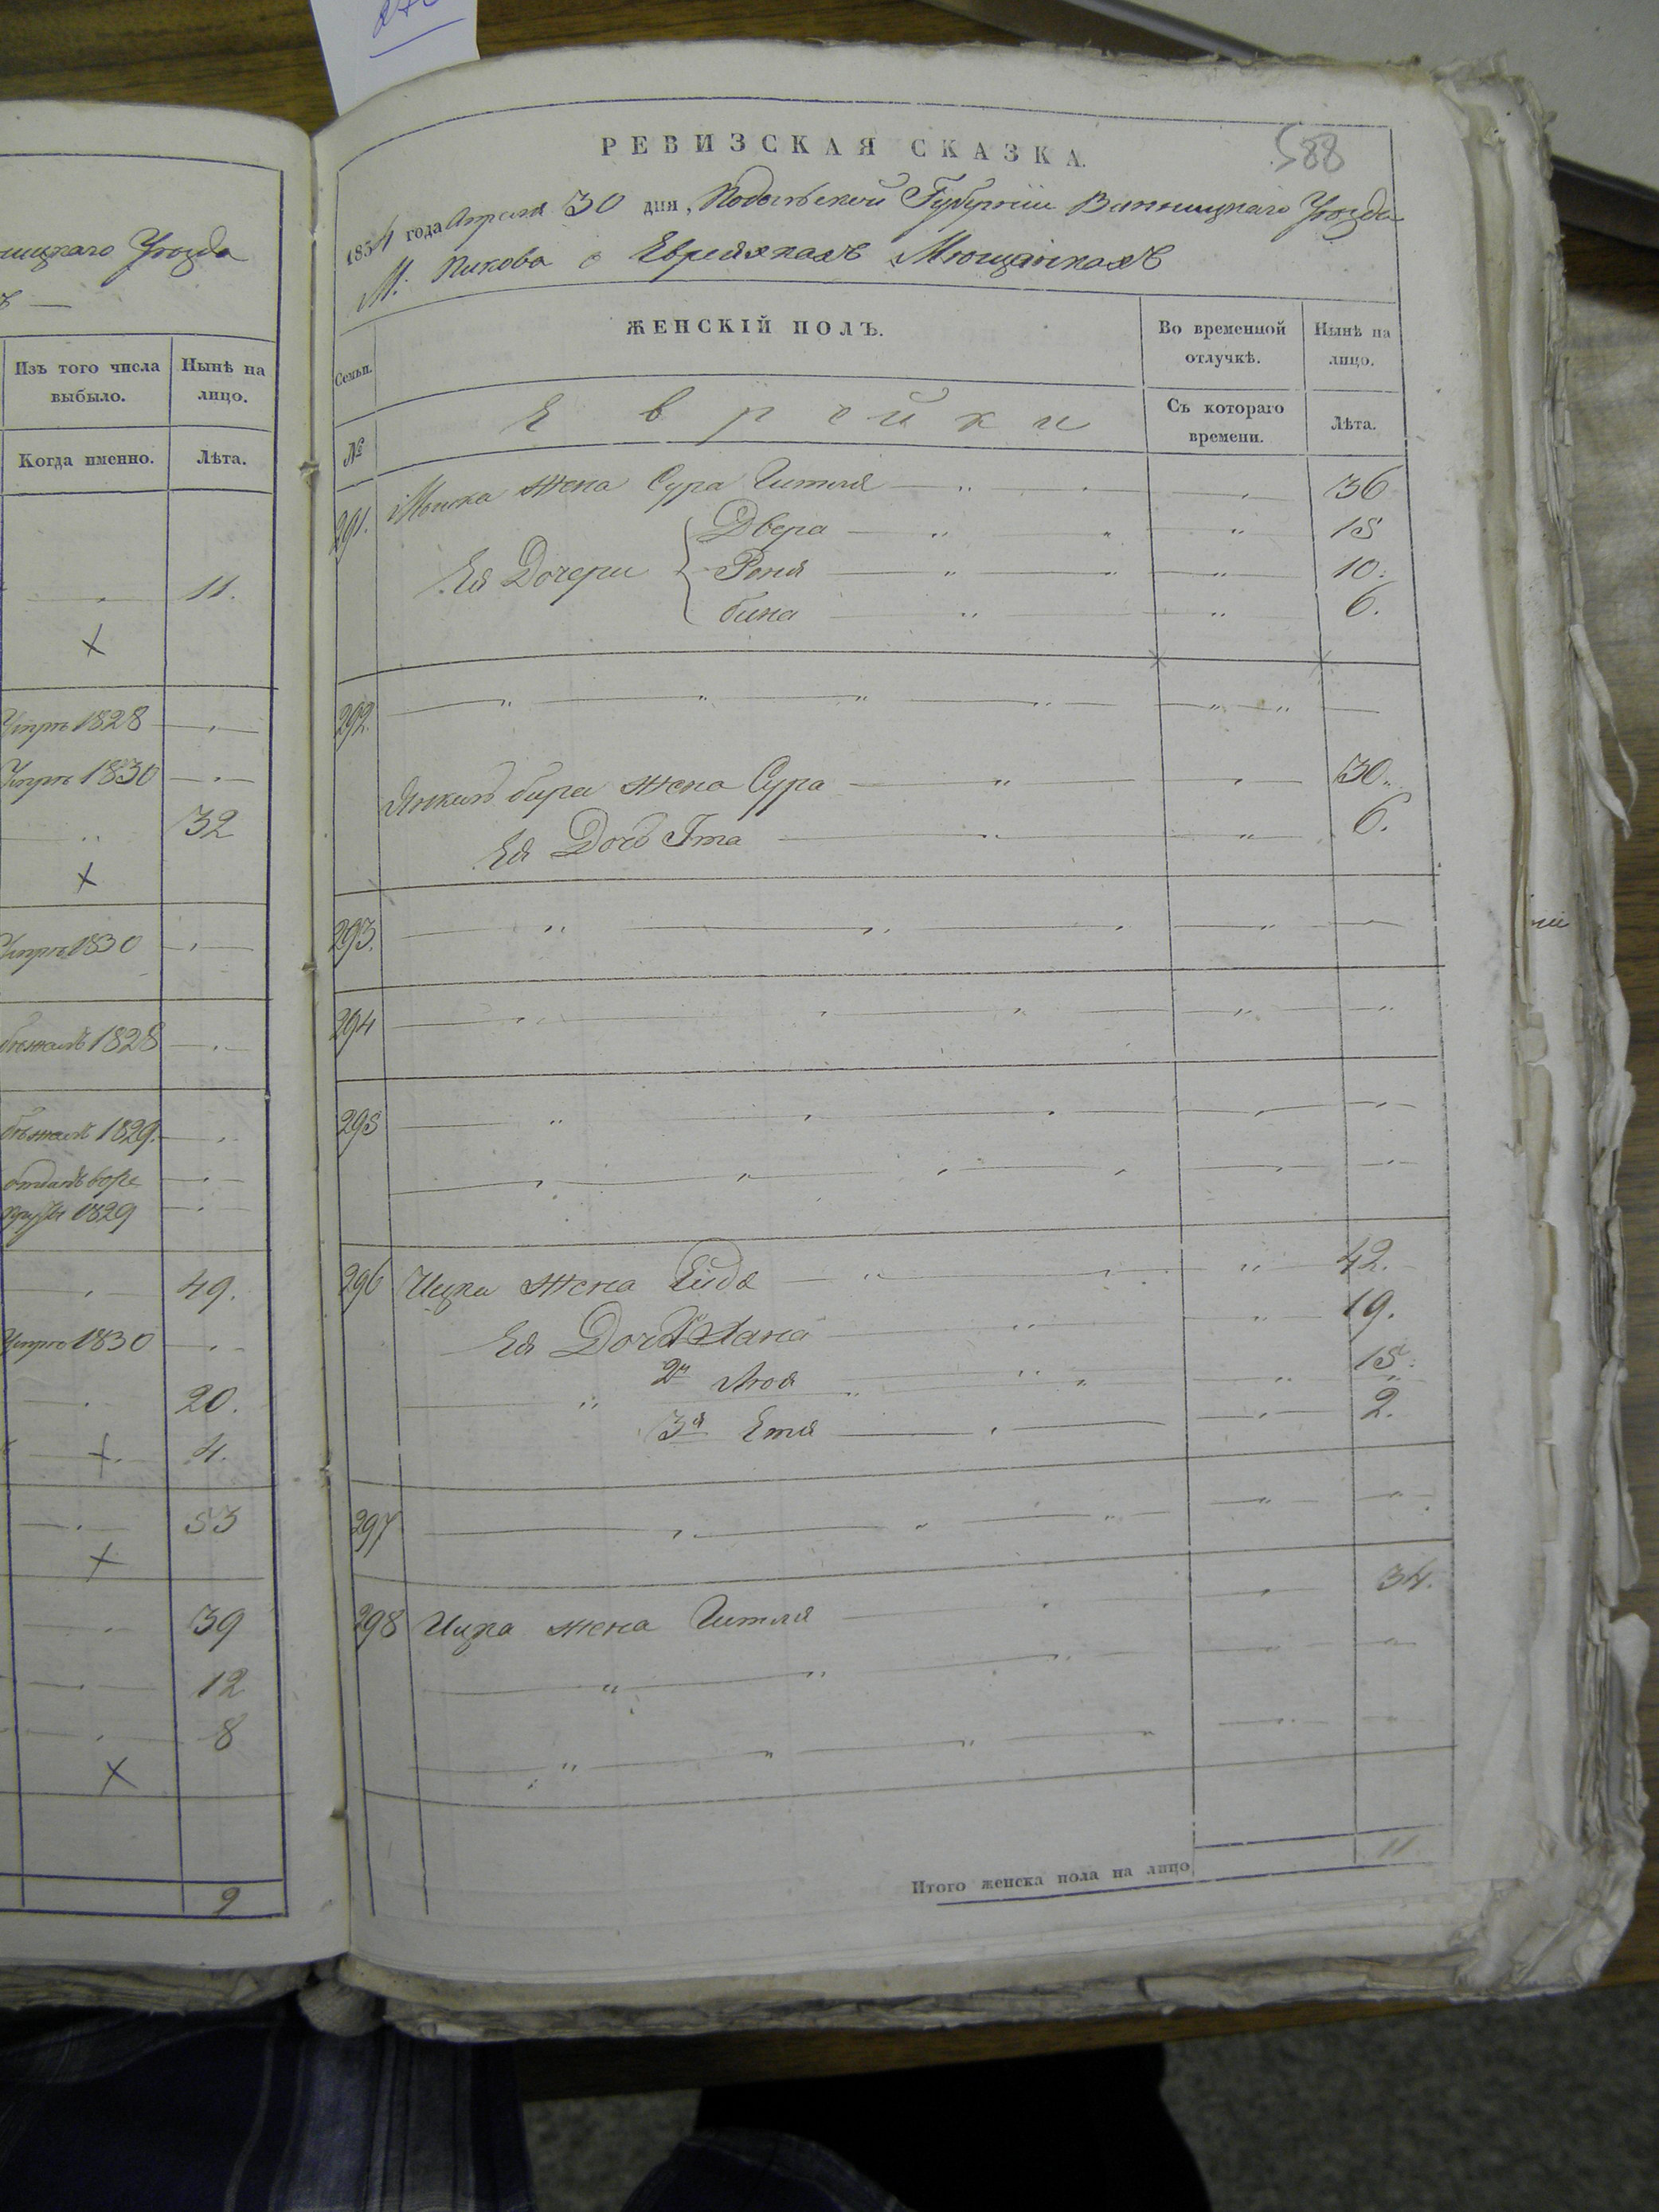 РЕВИЗСКАЯ СКАЗКА.
588
1834 года Апреля 30 дня, Подольской Губерніи Винницкаго Уѣзда
М: Пикова о Еврейкахъ Мѣщанкахъ
Семьи.
ЖЕНСКІЙ ПОЛЪ.
Во временной отлучкѣ.
Нынѣ на лицо.
№
Еврейки
Съ котораго времени.
Лѣта.
291. Мошка жена Сура Гитля — 36
Ея Дочери
Двера — 15
Роня — 10.
бина — 6.
292.
жена Сура — 30.
Ея Дочь Ита — 6.
293.
294
295
296 Ицка жена Еида — 42.
Ея Дочь Хана — 19.
2я — 15.
3я Етя — 2.
297
298 Ицка жена Гитля — 34.
Итого женска пола на лицо 11
Уѣзда
Изъ того числа выбыло.
Нынѣ на лицо.
Когда именно.
Лѣта.
11.
1828
1830
32
1830
1828
1829.
1829
49.
1830
20.
4.
53
39
12
8
9